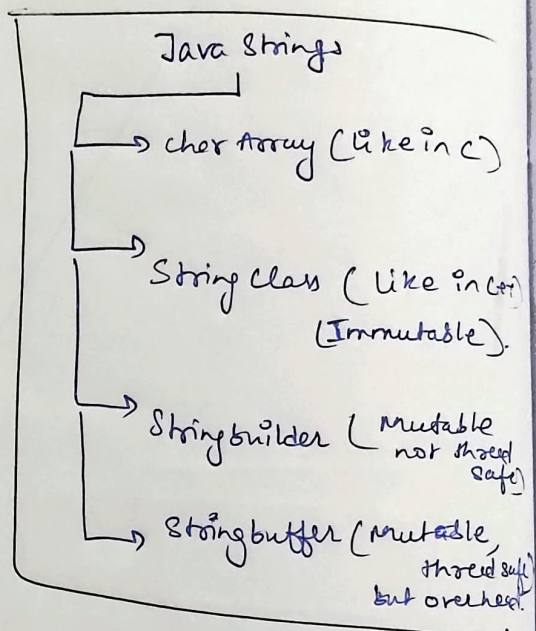 Java Strings
Char Array (Like in C)
String Class (Like in C++)
(Immutable).
Stringbuilder (Mutable
not thred
safe)
Stringbuffer (Mutable,
thred safe)
but overhead.